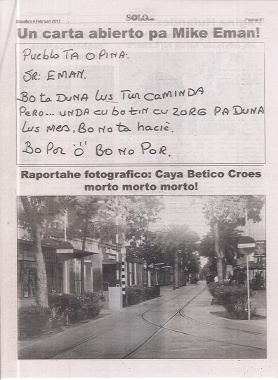 SOLO
Un carta abierto pa Mike Eman!
Pueblo TA OPINA:
SR: EMAN.
Bo ta DUNA LUS TUR CAMINDA
PERO... UNDA CU BOTIN CU ZORG PA DUNA
LUS MES, BO NO ta haciè.
BO POR "Ö" BO NO POR.
Raportahe fotografico: Caya Betico Croes
morto morto morto!